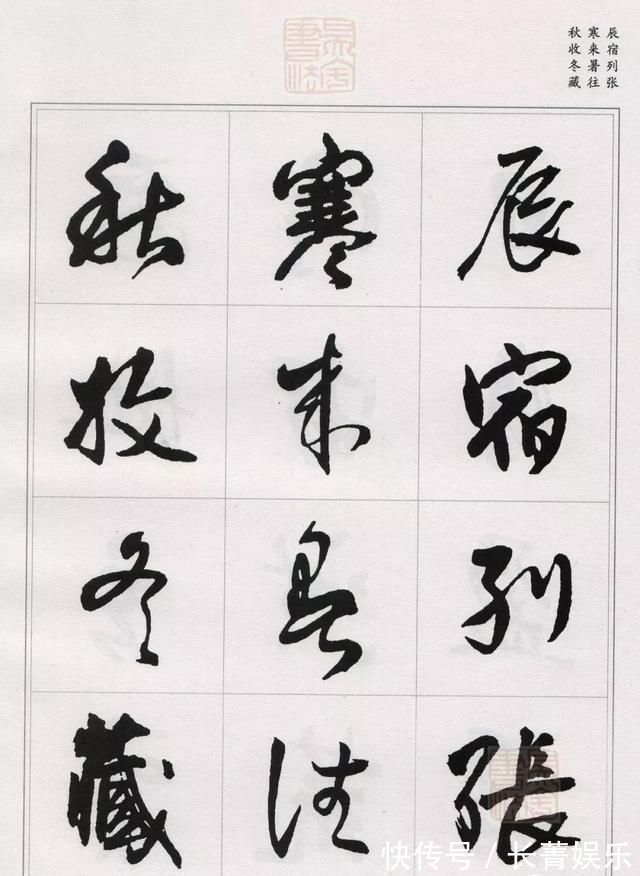 辰宿列张
寒来暑往
秋收冬藏
辰宿列張
寒来暑往
秋收冬藏
快传号／长菁娱乐